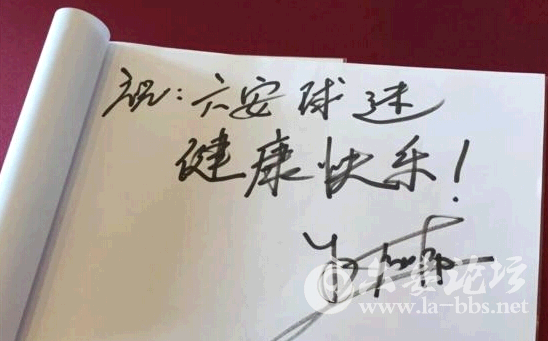 祝:六安球迷
健康快乐!
六安论坛
www.la-bbs.net